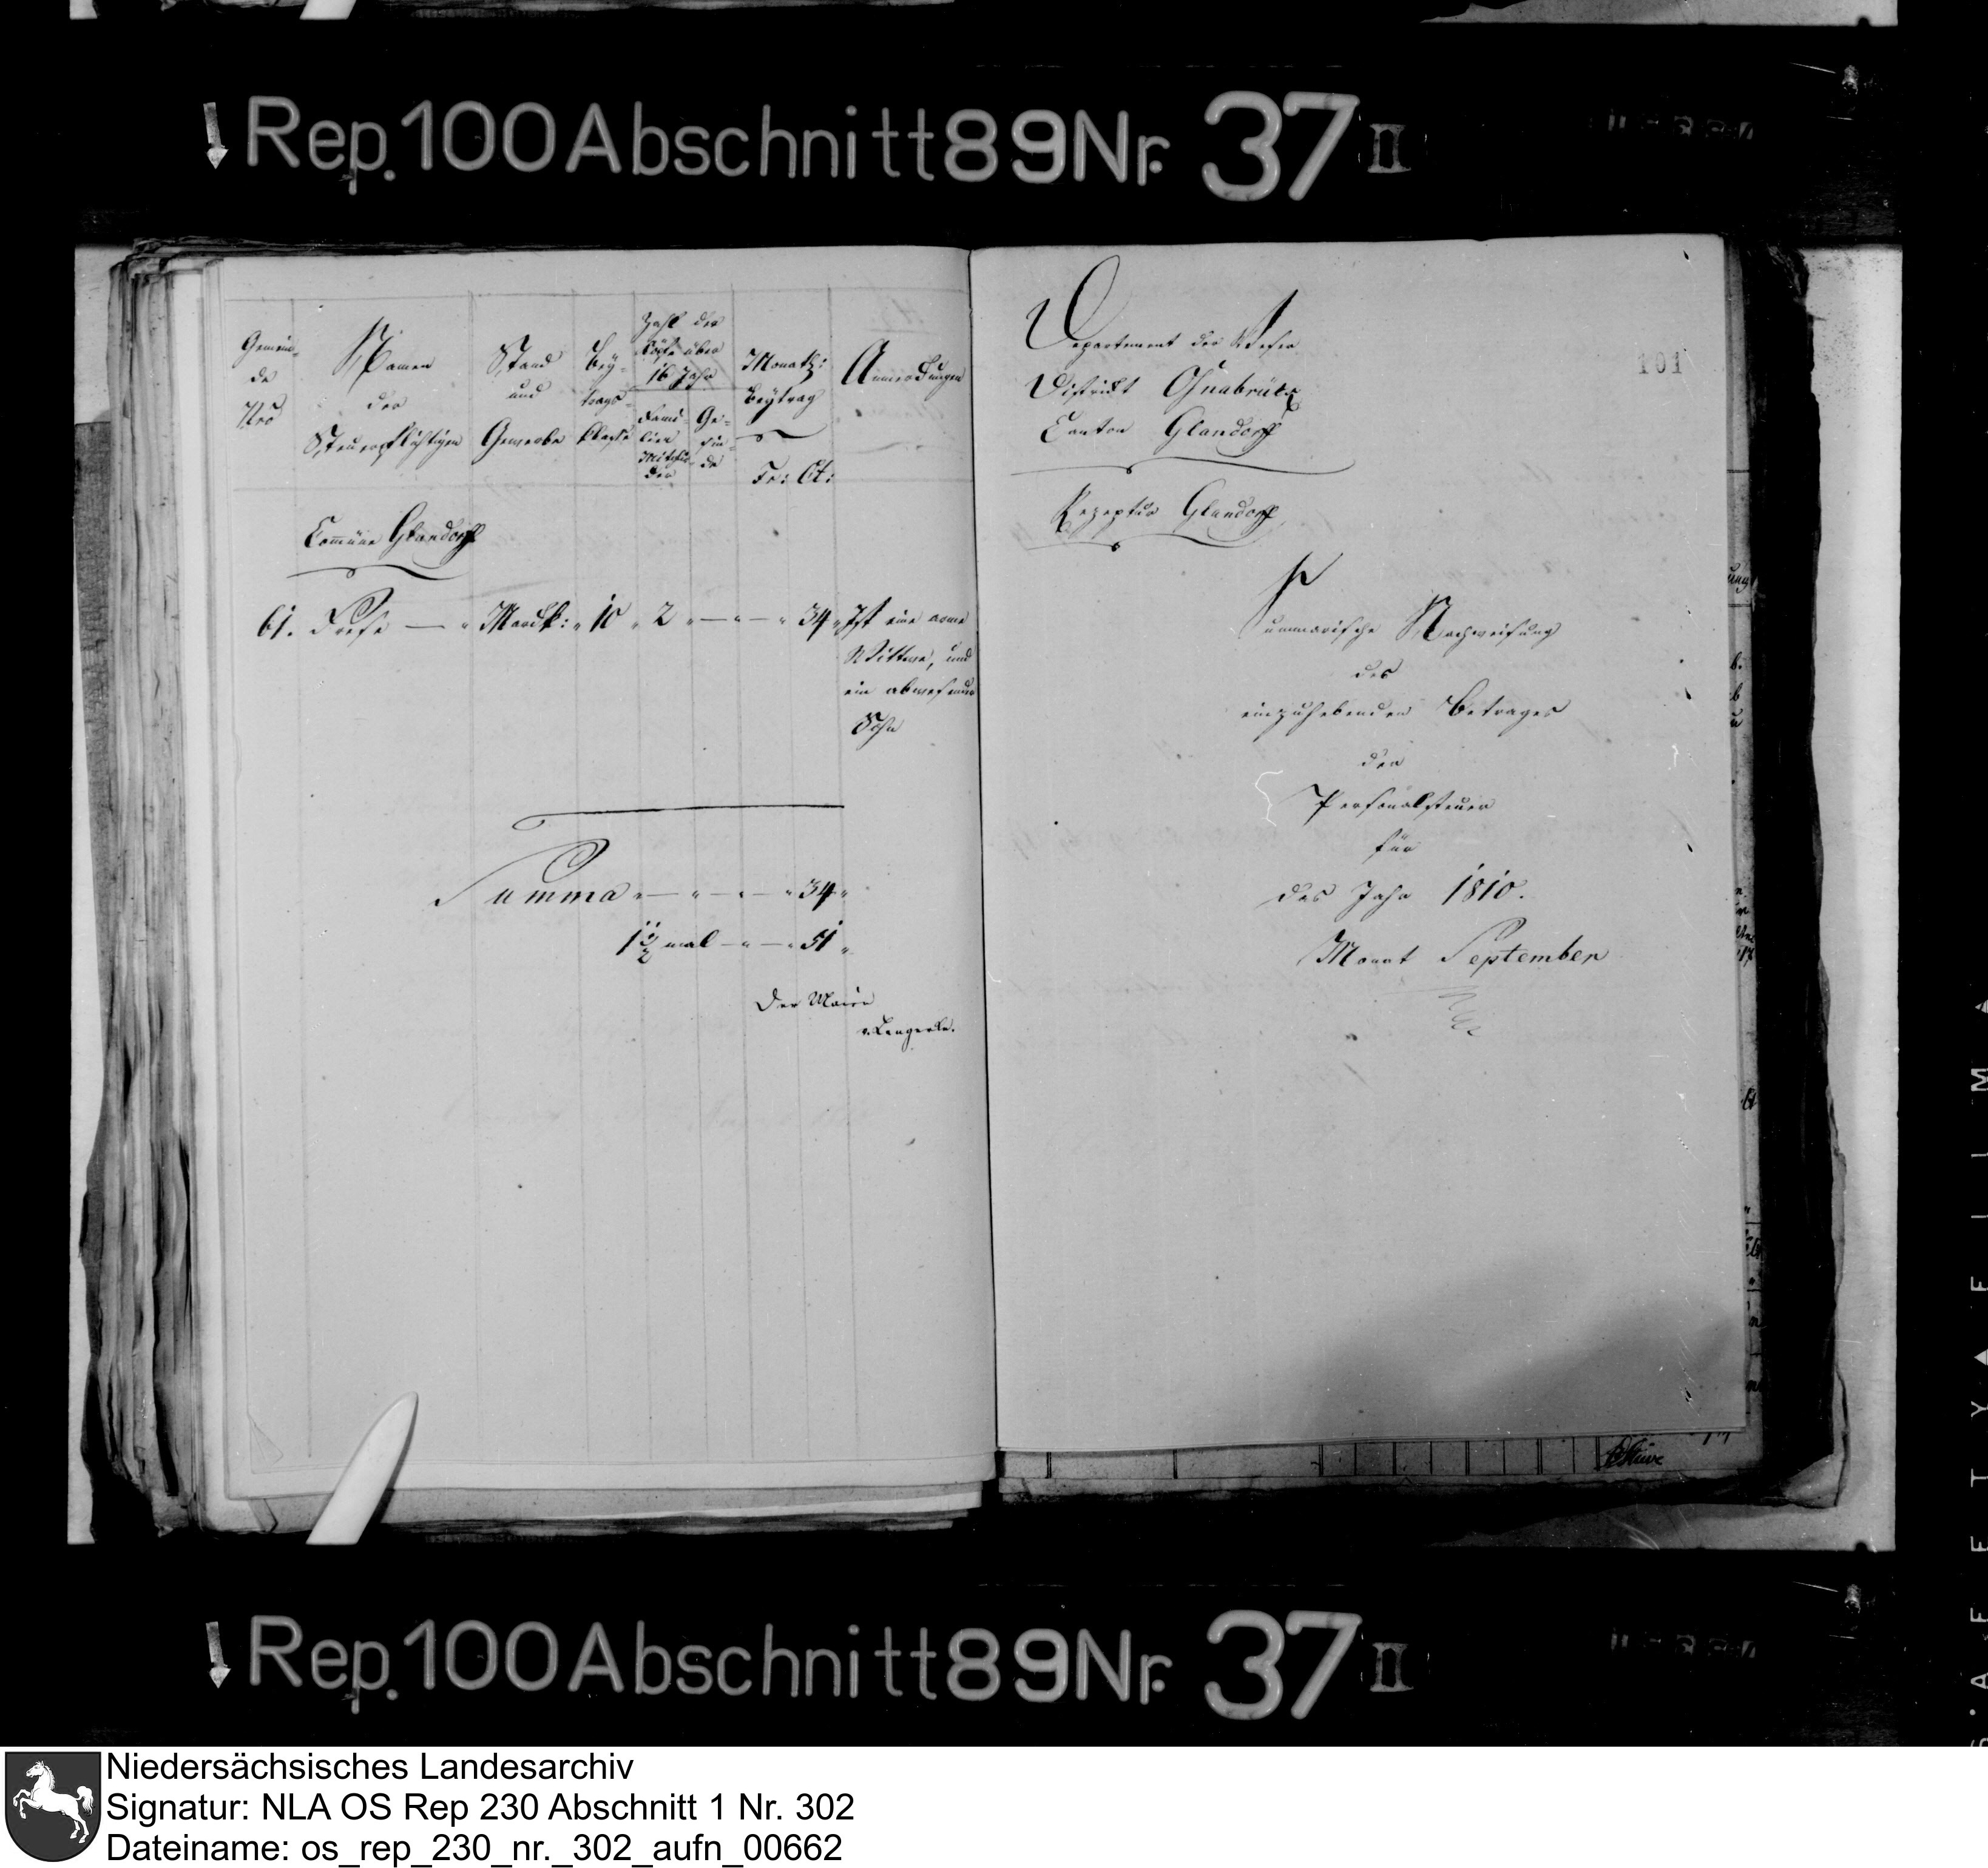 Rep. 100 Abschnitt 89 Nr. 37 II
Gemein-
de
Nro
Namen
der
Steuerpflichtigen
Stand
und
Gewerbe
Bey-
trags-
klasse
Zahl der
Köpfe über
16 Jahr
Fami-
lien
Mitglie-
der
Ge-
sin-
de
Monatl:
Beytrag
Fr: Ct:
Anmerkungen
Commüne Glandorff
61. Friese — Markk: 10 2 — 34 Ist eine arme
Wittwe, und
ein abwesender
Sohn
Summa — 34
1 1/2 mal — 51
Der Maire
v. Lengerke.
101
Departement der Weser
District Osnabrück
Canton Glandorff
Rezeptur Glandorff
Summarische Nachweisung
des
einzuhebenden Betrages
der
Personalsteuer
für
das Jahr 1810.
Monat September
Rep. 100 Abschnitt 89 Nr. 37 II
Niedersächsisches Landesarchiv
Signatur: NLA OS Rep 230 Abschnitt 1 Nr. 302
Dateiname: os_rep_230_nr._302_aufn_00662